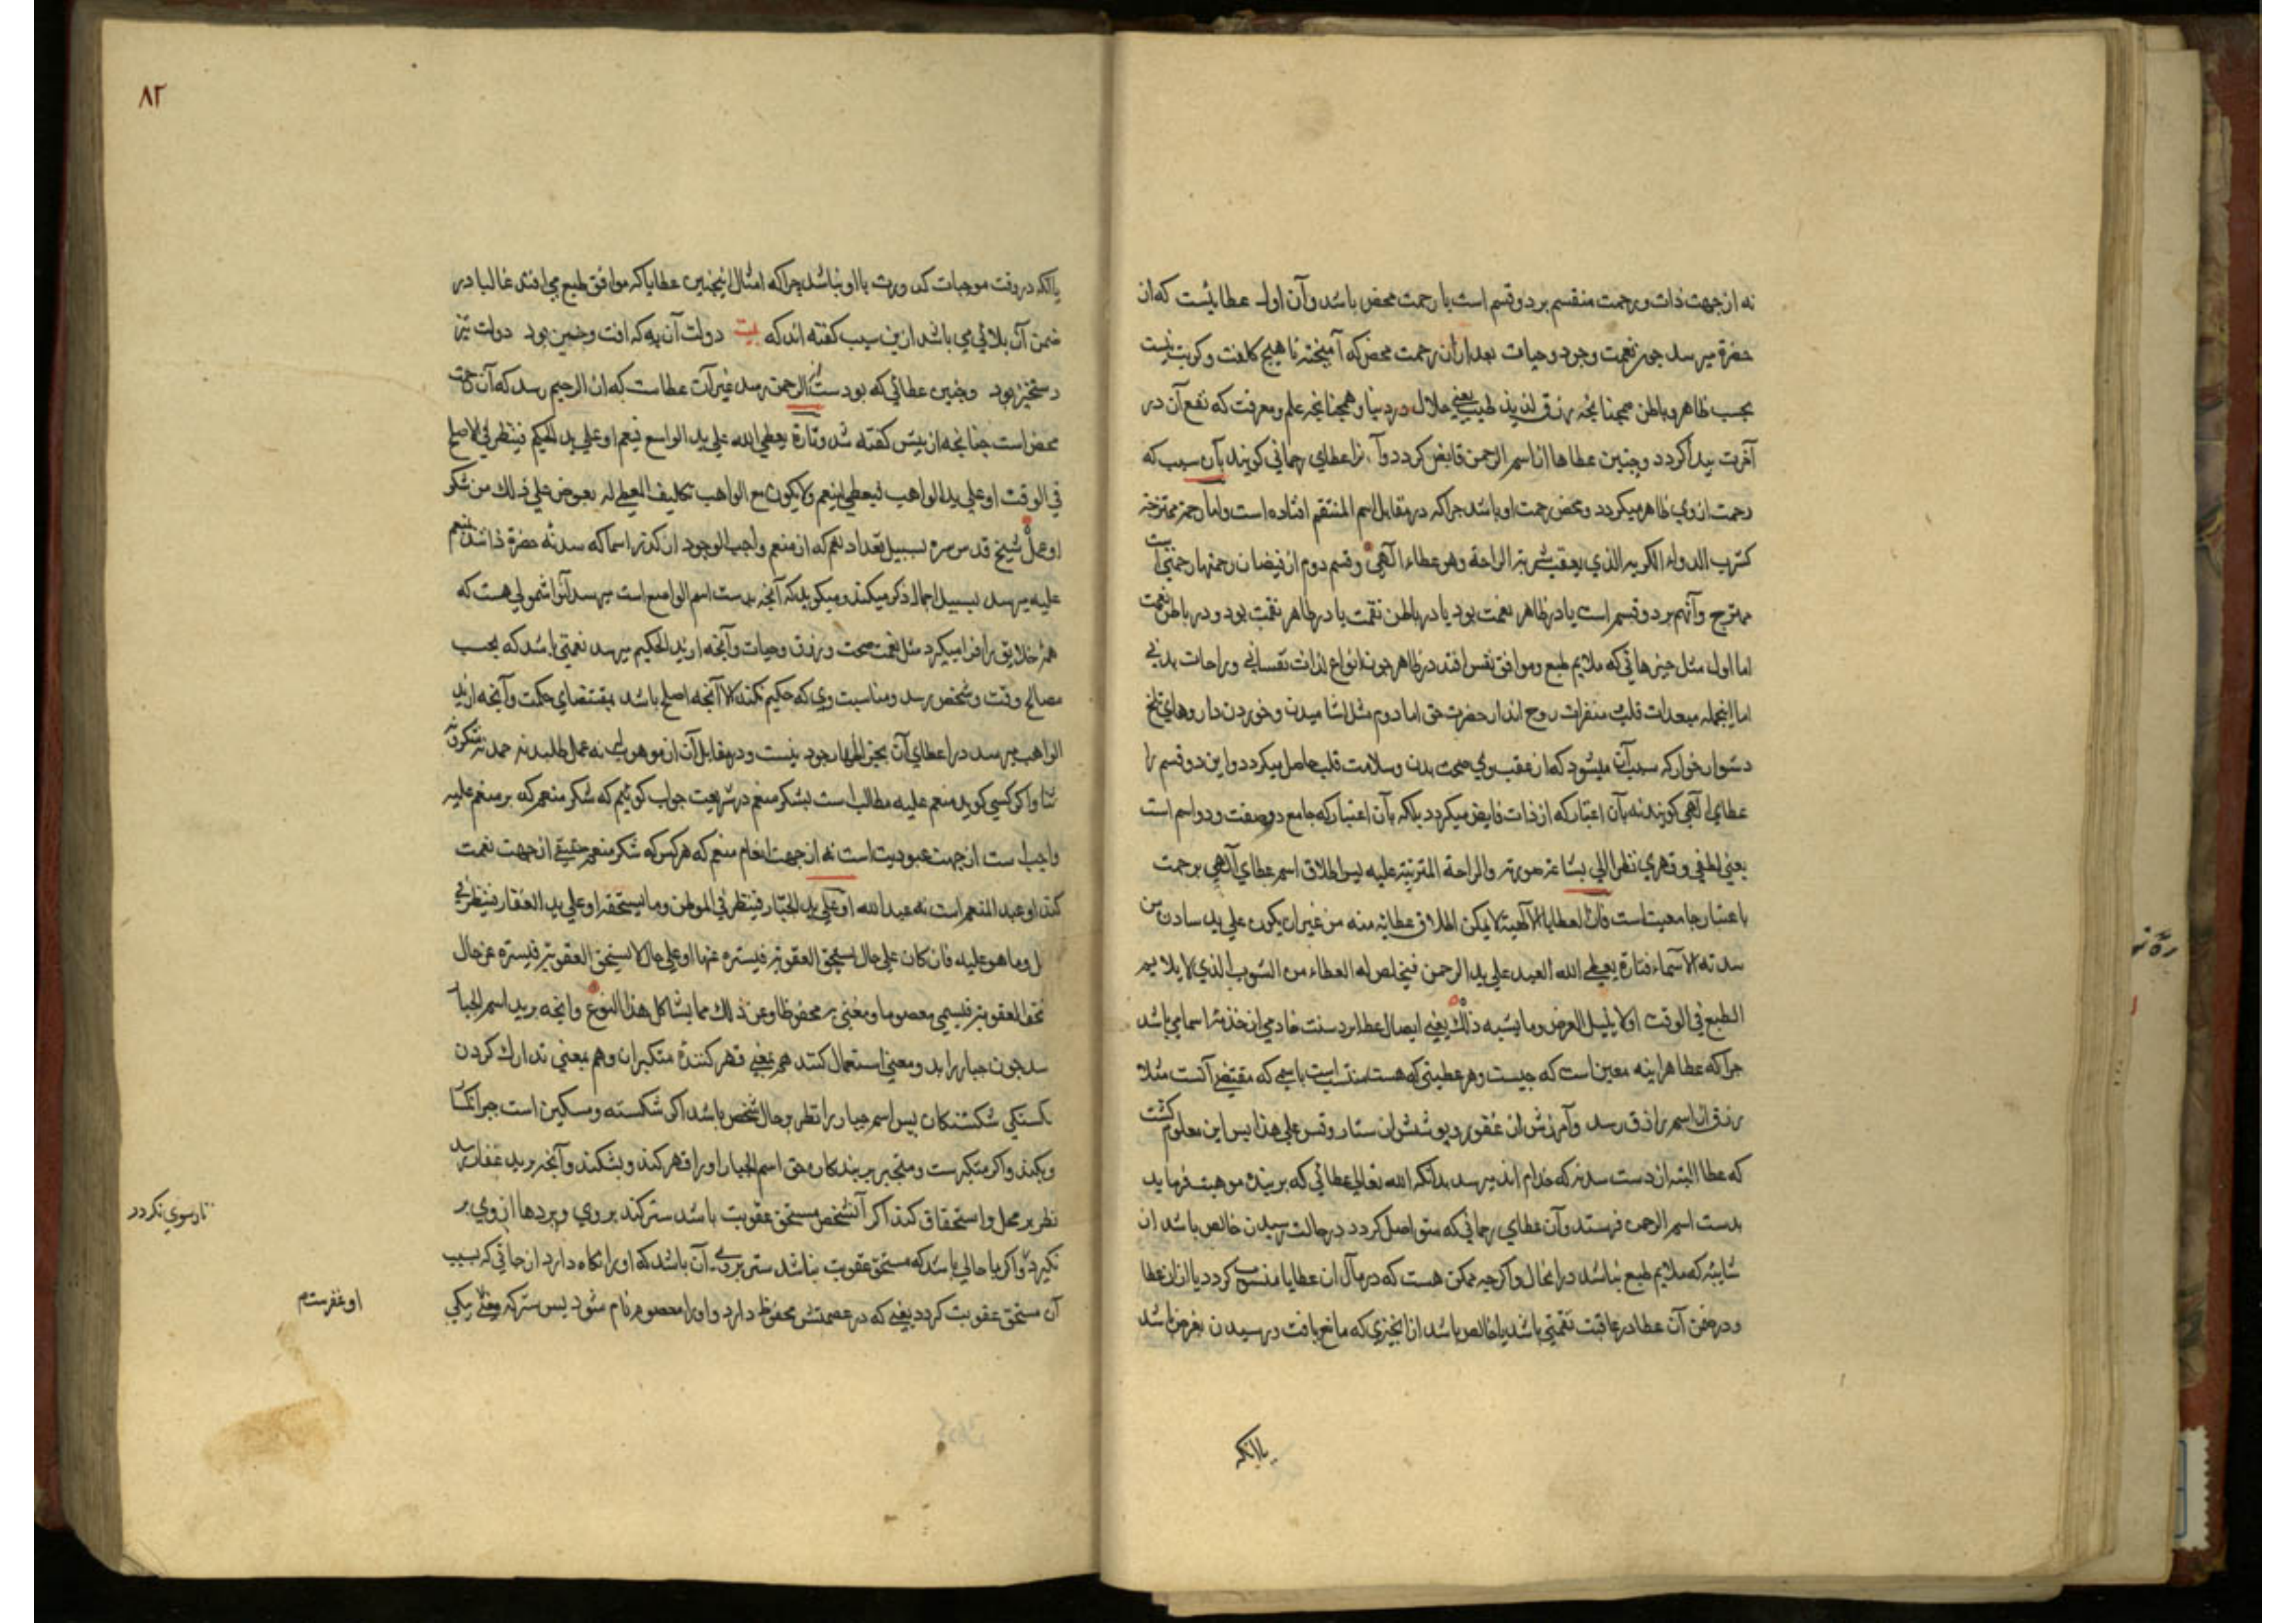 نه از جهت ذات و رحمت منقسم بر دو قسم است یا رحمت محض باشد و آن اول عطایئست که از
حضرة میرسد چون نعمت وجود و حیات بعد از آن رحمت محض که آمیخته با هیچ کلفت و کربت نیست
بحسب ظاهر و باطن همچنانچه رزق لذیذ طیب یعنی حلال در دنیا و همچنانچه علم و معرفت که نفع آن در
آخرت پیدا کردد و چنین عطاها از اسم الرحمن فایض کردد و آنرا عطای رحمانی کویند بآن سبب که
رحمت از وی ظاهر میکردد و محض رحمت او باشد چرا که در مقابل اسم المنتقم افتاده است و اما رحمة ممتزجة
کشرب الدواء الکریه الذی یعقب شربه الراحة وهو عطاء آلهی و قسم دوم از فیضان رحمتها رحمتی است
ممتزج و آنهم بر دو قسم است یا در ظاهر نعمت بود یا در باطن نقمت یا در ظاهر نقمت بود و در باطن نعمت
اما اول مثل چیزهائی که ملایم طبع و موافق نفس افتد در ظاهر چون انواع لذات نفسانی و راحات بدنی
اما اینجمله مبعدات قلب منفرات روح اند از حضرت حق اما دوم مثل اشامیدن و خوردن داروهای تلخ
دشوار خوار که سبب آن میشود که از عقب وی صحت بدن و سلامت قلب حاصل میکردد و این دو قسم را
عطای آلهی کویند نه بآن اعتبار که از ذات فایض میکردد بلکه بآن اعتبار که جامع دو صفت و دو اسم است
یعنی لطفی و قهری نظرا الی بشاعة صورته والراحة المترتبة علیه پس اطلاق اسم عطای آلهی بر رحمت
باعتبار جامعیت است فان العطایا الالهیة لا یمکن اطلاق عطائه منه من غیر ان یکون علی ید سادن من
سدنة الاسماء فتارة یعطی الله العبد علی ید الرحمن فیخلص له العطاء من الشوب الذی لا یلایم
الطبع فی الوقت او لا ینیل الغرض وما یشبه ذلك یعنی ایصال عطا بر دست خادمی از خدمه اسما می باشد
چرا که عطا هراینه معین است که چیست و هر عطیتی که هست منتسب است باسمی که مقتضی آنست مثلا
رزق از اسم رازق رسد و آمرزش از غفور و پوشش از ستار و قس علی هذا پس این معلوم کشت
که عطا البته از دست سدنه که خدام اند میرسد بدانکه الله تعالی عطائی که بر بنده موهبت فرماید
بدست اسم الرحمن فرستد و آن عطای رحمانی که متواصل کردد در حالت رسیدن خالص باشد از
شایبه که ملایم طبع نباشد در انحال و اکرچه ممکن هست که در مآل ان عطایا منسوب کردد یا از ان عطا
و در ضمن آن عطا در عاقبت نقمتی باشد یا خالص باشد از انچیزی که مانع یافت و رسیدن بغرض باشد
یا انکه
٨٢
یا انکه در وقت موجبات کدورت با او نباشد چرا که امثال اینچنین عطایا که موافق طبع می افتد غالبا در
ضمن آن بلائی می باشد ازین سبب کفته اند که بیت دولت آن به که افت و چنین بود دولت تیز
رستخیز بود و چنین عطائی که بود ست الرحمن رسد غیر آن عطاست که از الرحیم رسد که آن رحمت
محض است چنانچه از پیش کفته شد وتارة یعطی الله علی ید الواسع فیعم او علی ید الحکیم فینظر فی الاصلح
فی الوقت او علی ید الواهب فیعطی لینعم ولا یکون مع الواهب تکلیف المعطی له بعوض علی ذلك من شکر
او عمل شیخ قدس سره بسبیل تعداد نعم که از منعم واجب الوجود از کدر اسما که سدنه حضرة ذاتند بمنعم
علیه میرسد بسبیل اجمال ذکر میکند و میکوید که آنچه بدست اسم الواسع است میرسد آنرا شمولی هست که
همه خلایق را فرا میکیرد مثل نعمت صحت و رزق و حیات و آنچه از ید الحکیم میرسد نعمتی باشد که بحسب
مصالح وقت و شخص رسد و مناسبت وی که حکیم نکند الا آنچه اصلح باشد بمقتضای حکمت و آنچه از ید
الواهب میرسد در اعطای آن بجز اظهار جود نیست و در مقابل آن از موهوب له نه عمل طلبد نه حمد نه شکر و نه
ثنا و اکر کسی کوید منعم علیه مطالب است بشکر منعم در شریعت جواب کوئیم که شکر منعم که بر منعم علیه
واجب است از جهت عبودیت است نه از جهت انعام منعم که هر کس که شکر منعم حقیقی از جهت نعمت
کند او عبد المنعم است نه عبد الله او علی ید الجبار فینظر فی الموطن وما یستحقه او علی ید الغفار فینظر فی
ل وما هو علیه فان کان علی حال یستحق العقوبة فیستره عنها او علی حال لا یستحق العقوبة فیستره عن حال
تحق العقوبة فیسمی معصوما ومعتنی به محفوظا وغیر ذلك مما یشاکل هذا النوع و انچه بر ید اسم الجبار
سد چون جبار را بدو معنی استعمال کنند هم بمعنی قهر کننده متکبران و هم بمعنی تدارك کردن
کستکی شکستکان پس اسم جبار را نظر بر حال شخص باشد اکر شکسته و مسکین است جبرانکسار
وی کند و اکر متکبرست و متجبر بر بندکان حق اسم الجبار او را قهر کند و بشکند و آنچه بر ید غفار رسد
نظر بر محل و استحقاق کند اکر آنشخص مستحق عقوبت باشد ستر کند بر وی و پردها از وی بر
نکیرد و اکر با حالی باشد که مستحق عقوبت نباشد ستر بر وی آن باشد که او را نکاه دارد از حالی که بسبب
آن مستحق عقوبت کردد یعنی که در عصمتش محفوظ دارد و او را معصوم نام شود پس ستر که معنی یکی
تا رسوی نکردد